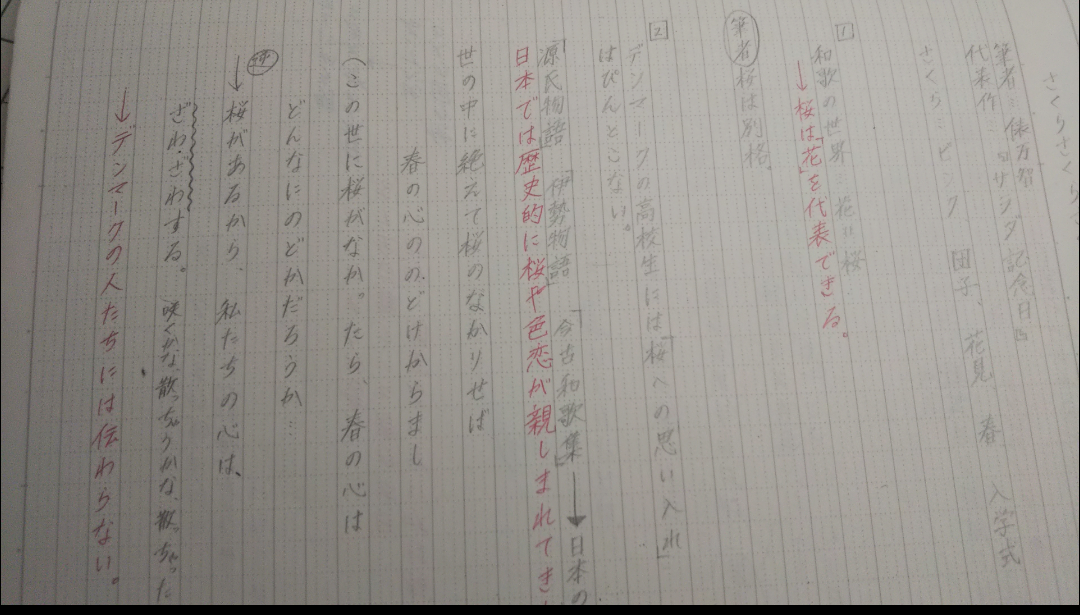 さくらさくらさ
筆者…俵万智
代表作…『サラダ記念日』
さくら…ピンク 団子、花見 春 入学式
1 和歌の世界…花＝桜
→桜は「花」を代表できる。
筆者 桜は別格。
2 デンマークの高校生には「桜への思い入れ」
はぴんとこない。
『源氏物語』『伊勢物語』『今古和歌集』→日本の
日本では歴史的に桜や色恋が親しまれてき
世の中に絶えて桜のなかりせば
春の心ののどけからまし
(この世に桜がなかったら、春の心は
どんなにのどかだろうか…
→桜があるから、私たちの心は、
ざわざわする。 咲くかな、散っちゃうかな、散っちゃった
→デンマークの人たちには伝わらない。